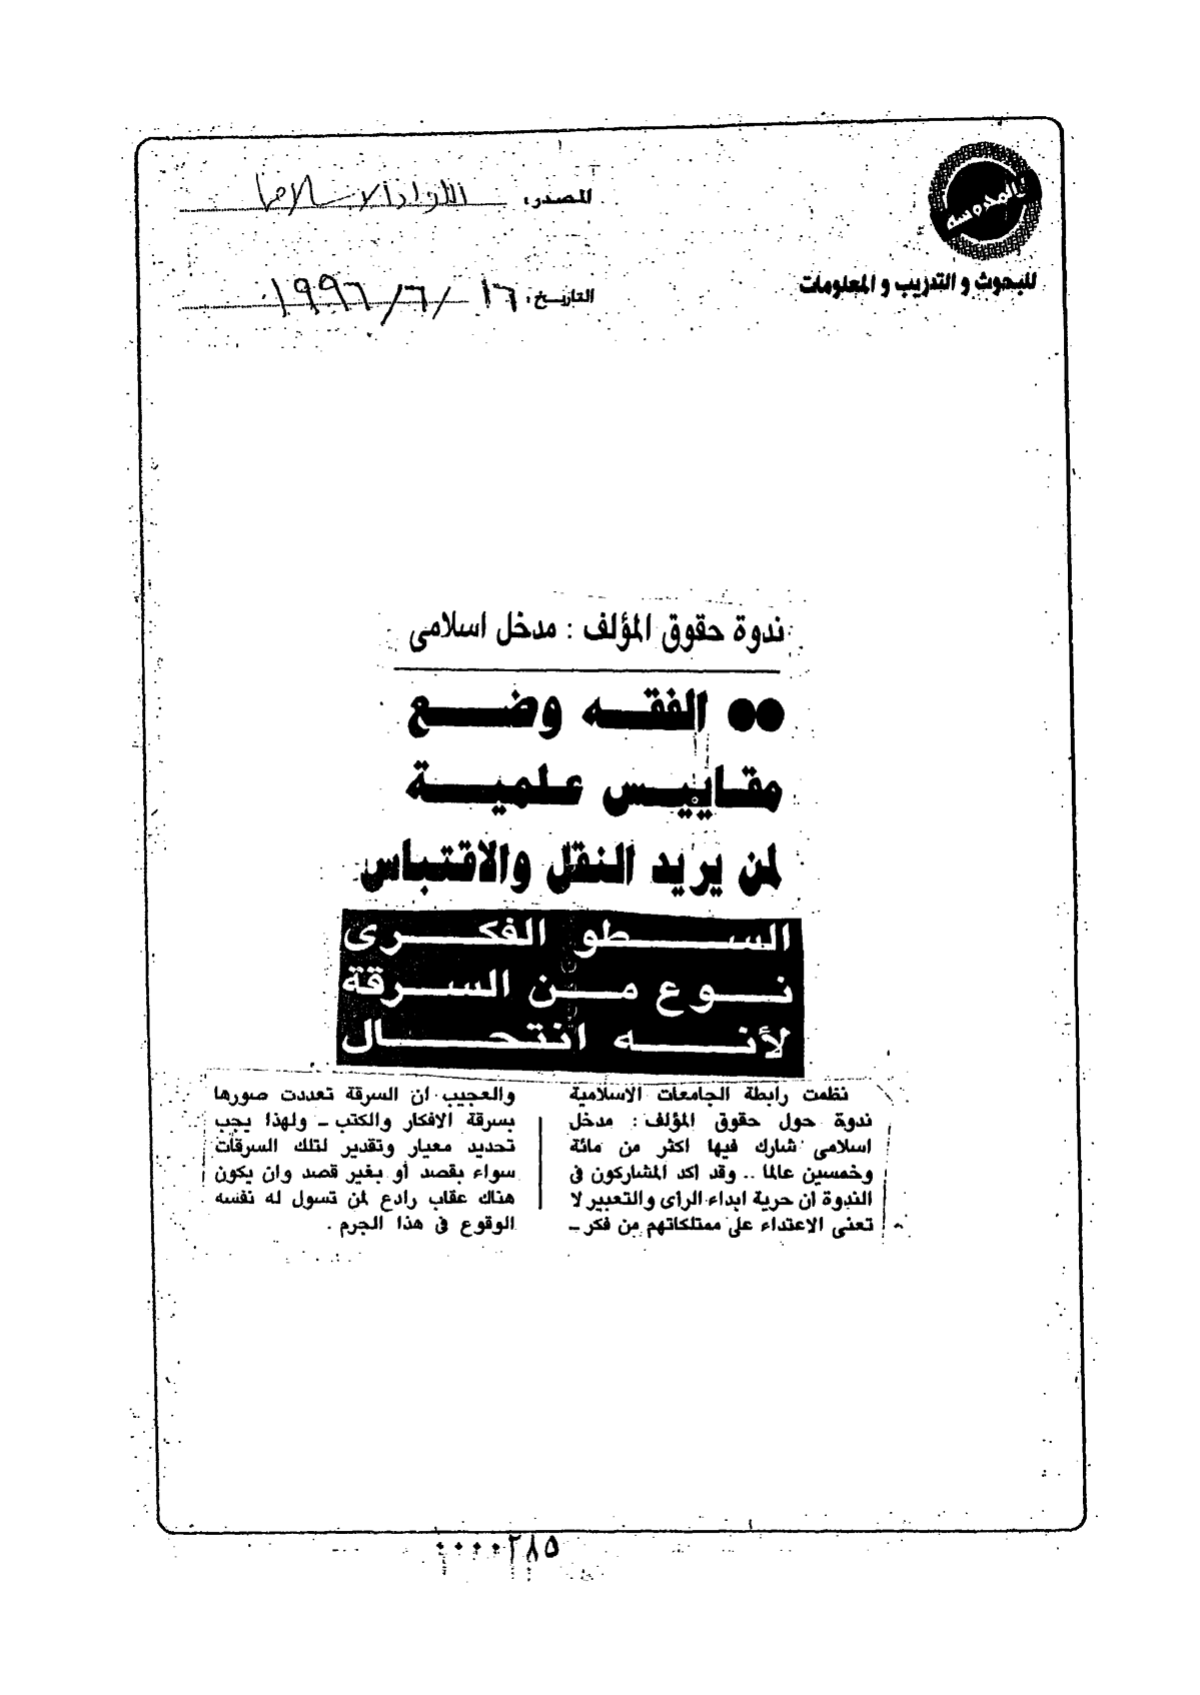 والمدوسه
للبحوث و التدريب و المعلومات
المصدر: اللواء الاسلامى
التاريخ: ١٦ / ٦ / ١٩٩٦
ندوة حقوق المؤلف : مدخل اسلامى
●● الفقه وضع
مقاييس علمية
لمن يريد النقل والاقتباس
السطو الفكرى
نوع من السرقة
لأنه انتحال
نظمت رابطة الجامعات الاسلامية
ندوة حول حقوق المؤلف : مدخل
اسلامى شارك فيها اكثر من مائة
وخمسين عالما .. وقد اكد المشاركون فى
الندوة ان حرية ابداء الرأى والتعبير لا
تعنى الاعتداء على ممتلكاتهم من فكر ــ
والعجيب ان السرقة تعددت صورها
بسرقة الافكار والكتب ــ ولهذا يجب
تحديد معيار وتقدير لتلك السرقات
سواء بقصد أو بغير قصد وان يكون
هناك عقاب رادع لمن تسول له نفسه
الوقوع فى هذا الجرم .
٠٠٠٠٢٨٥